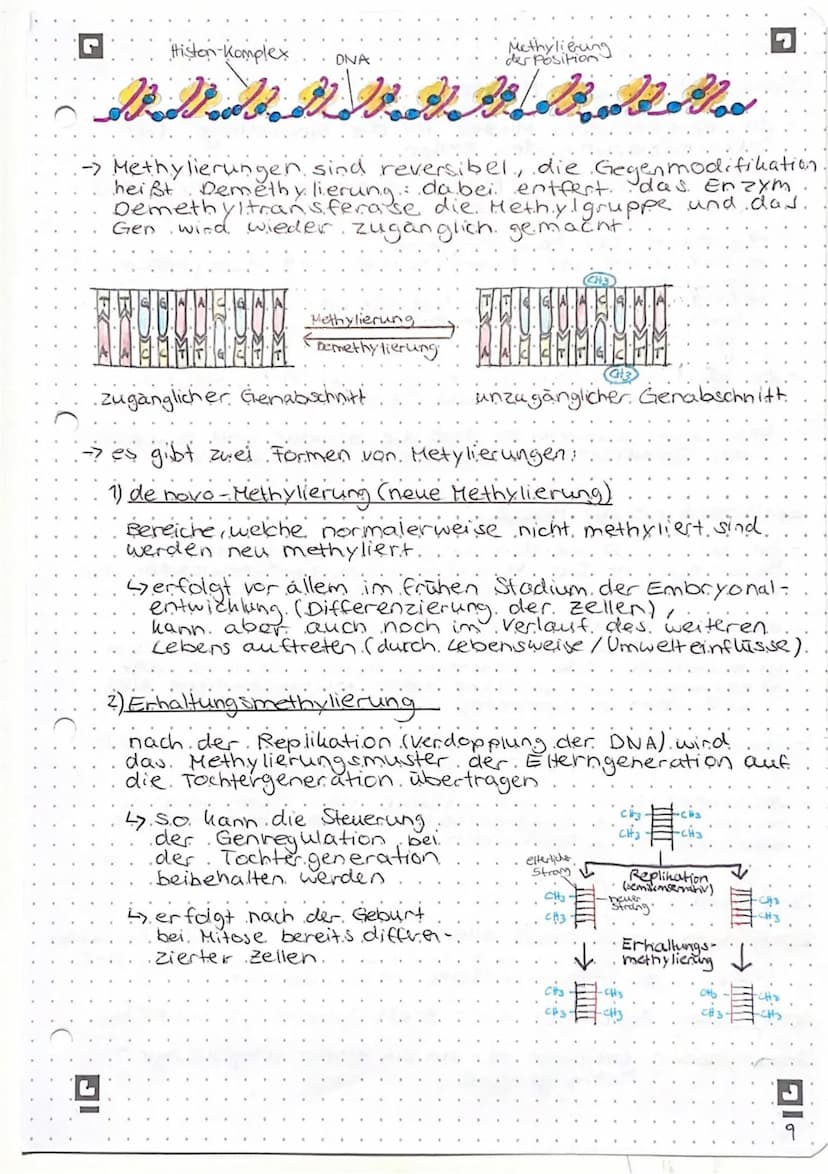 Histon-Komplex
DNA
Methylierung
der Position
→ Methylierungen sind reversibel, die Gegenmodifikation
heißt Demethylierung: dabei entfert das Enzym
Demethyltransferase die Methylgruppe und das
Gen wird wieder zugänglich gemacht.
CH3
T T G G A A C G A A
A A C C T T G C T T
Methylierung
Demethylierung
T T G G A A C G A A
A A C C T T G C T T
CH3
zugänglicher Genabschnitt
unzugänglicher Genabschnitt
→ es gibt zwei Formen von Metylierungen:
1) de novo-Methylierung (neue Methylierung)
Bereiche, welche normalerweise nicht methyliert sind
werden neu methyliert.
↳ erfolgt vor allem im frühen Stadium der Embryonal-
entwicklung (Differenzierung der Zellen),
kann aber auch noch im Verlauf des weiteren
Lebens auftreten (durch Lebensweise / Umwelteinflüsse).
2) Erhaltungsmethylierung
nach der Replikation (Verdopplung der DNA) wird
das Methylierungsmuster der Elterngeneration auf
die Tochtergeneration übertragen
↳ so kann die Steuerung
der Genregulation bei
der Tochtergeneration
beibehalten werden
↳ erfolgt nach der Geburt
bei Mitose bereits differen-
zierter Zellen.
CH3 CH3
CH3 CH3
elterlicher
Strang
Replikation
(semikonservativ)
CH3
neuer
Strang
CH3
CH3
CH3
Erhaltungs-
methylierung
CH3 CH3
CH3 CH3
CH3 CH3
CH3 CH3
9